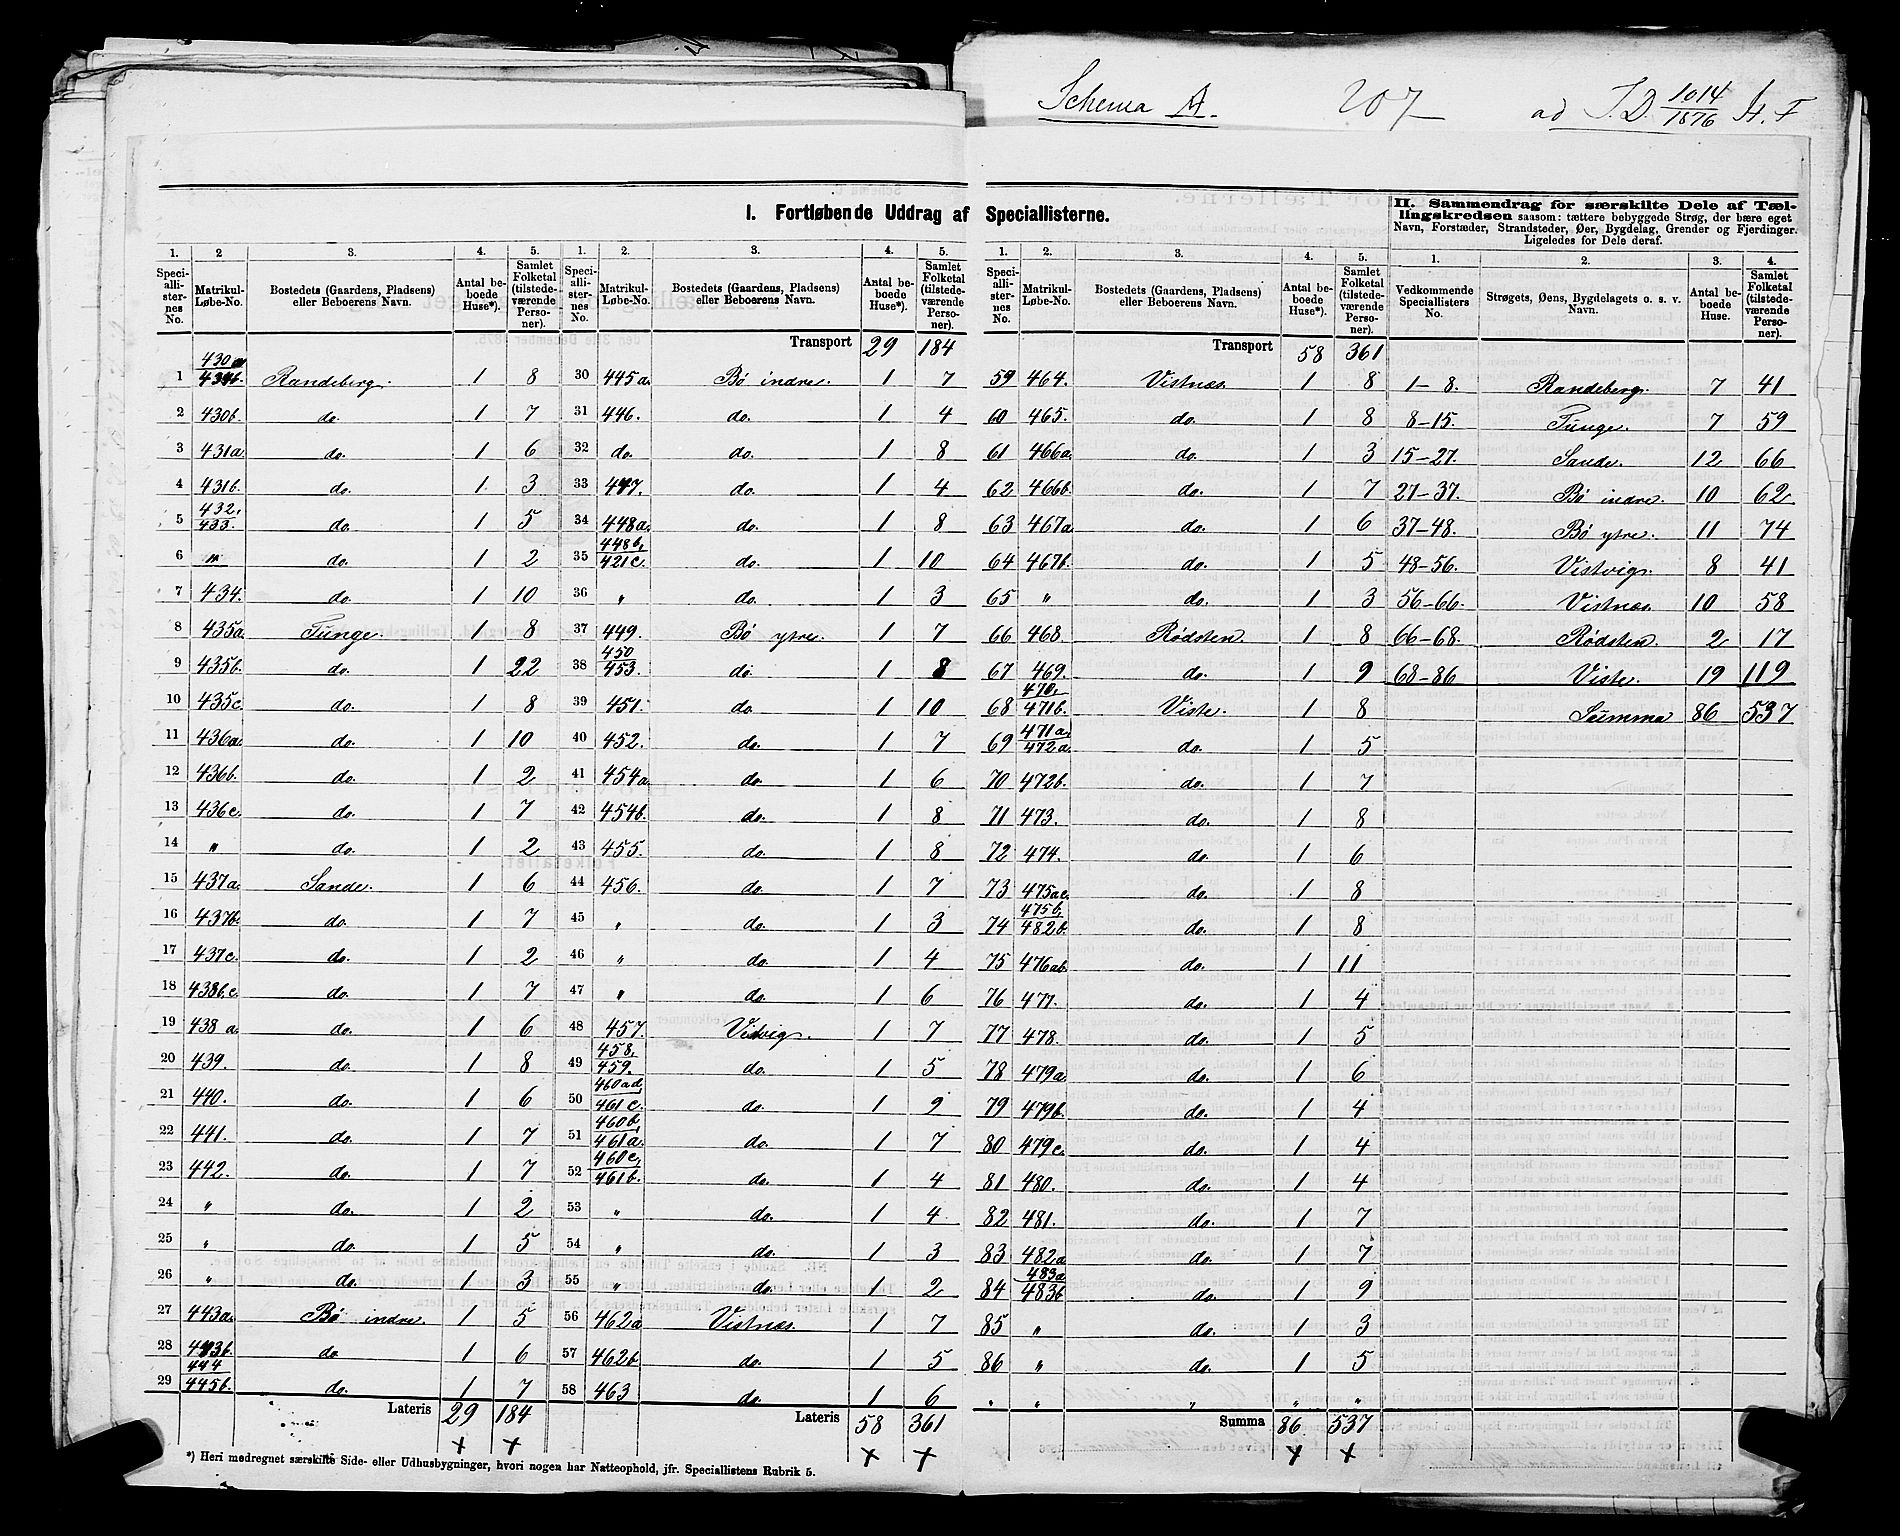 Schema A. 207 ad T.D. 1014/1876 H. F
I. Fortløbende Uddrag af Speciallisterne.
II. Sammendrag for særskilte Dele af Tællingskredsen saasom: tættere bebyggede Strøg, der bære eget
Navn, Forstæder, Strandsteder, Øer, Bygdelag, Grender og Fjerdinger.
Ligeledes for Dele deraf.
1. 2 3. 4. 5.
Speciallisternes No. Matrikul-Løbe-No. Bostedets (Gaardens, Pladsens) eller Beboerens Navn. Antal beboede Huse*). Samlet Folketal (tilstedeværende Personer).
1 430a 434b. Randeberg. 1 8
2 430b. do. 1 7
3 431a. do. 1 6
4 431b. do. 1 3
5 432, 433. do. 1 5
6 " do. 1 2
7 434. do. 1 10
8 435a. Tunge. 1 8
9 435b. do. 1 22
10 435c. do. 1 8
11 436a. do. 1 10
12 436b. do. 1 2
13 436c. do. 1 7
14 " do. 1 2
15 437a. Sande. 1 6
16 437b. do. 1 7
17 437c. do. 1 2
18 438b.c. do. 1 7
19 438 a. do. 1 6
20 439. do. 1 8
21 440. do. 1 6
22 441. do. 1 7
23 442. do. 1 7
24 " do. 1 2
25 " do. 1 5
26 " do. 1 3
27 443a. Bø indre 1 5
28 443b. do. 1 6
29 444 445b. do. 1 7
Lateris 29 184
1. 2. 3. 4. 5.
Speciallisternes No. Matrikul-Løbe-No. Bostedets (Gaardens, Pladsens) eller Beboerens Navn. Antal beboede Huse*). Samlet Folketal (tilstedeværende Personer).
Transport 29 184
30 445a. Bø indre. 1 7
31 446. do. 1 4
32 do. do. 1 8
33 447. do. 1 4
34 448a. do. 1 8
35 448b, 421c. do. 1 10
36 " do. 1 3
37 449. Bø ytre. 1 7
38 450 453. do. 1 8
39 451. do. 1 10
40 452. do. 1 7
41 454a. do. 1 6
42 454b. do. 1 8
43 455. do. 1 8
44 456. do. 1 7
45 " do. 1 3
46 " do. 1 4
47 " do. 1 6
48 457. 1 7
49 458, 459. do. 1 5
50 460ad, 461c. do. 1 9
51 460b, 461a. do. 1 7
52 460c, 461b. do. 1 4
53 " do. 1 4
54 " do. 1 3
55 " do. 1 2
56 462a Vistnæs. 1 7
57 462b do. 1 5
58 463 do. 1 6
Lateris 58 361
1. 2. 3. 4. 5.
Speciallisternes No. Matrikul-Løbe-No. Bostedets (Gaardens, Pladsens) eller Beboerens Navn. Antal beboede Huse*). Samlet Folketal (tilstedeværende Personer).
Transport 58 361
59 464. Vistnæs. 1 8
60 465. do. 1 8
61 466a. do. 1 3
62 466b. do. 1 7
63 467a do. 1 6
64 467b. do. 1 5
65 " do. 1 3
66 468 Rødsten. 1 8
67 469. do. 1 9
68 470, 471b. Viste. 1 8
69 471a, 472a. do. 1 5
70 472b. do. 1 7
71 473. do. 1 8
72 474. do. 1 6
73 475ac. do. 1 8
74 475b, 482b. do. 1 8
75 476ab. do. 1 11
76 477. do. 1 4
77 478. do. 1 5
78 479a. do. 1 6
79 479b. do. 1 4
80 479c. do. 1 4
81 480. do. 1 4
82 481. do. 1 7
83 482a do. 1 7
84 483a 483b do. 1 9
85 " do. 1 3
86 " do. 1 5
" " " " "
Summa 86 537
1. 2. 3. 4.
Vedkommende Speciallisters No. Strøgets, Øens, Bygdelagets o. s. v. Navn. Antal beboede Huse. Samlet Folketal (tilstedeværende Personer).
1-8. Randeberg. 7 41
8-15. Tunge. 7 59
15-27. Sande. 12 66
27-37. Bø indre. 10 62
37-48. Bø ytre. 11 74
48-56. Vistvig. 8 41
56-66. Vistnæs. 10 58
66-68. Rødsten. 2 17
68-86 Viste. 19 119
Summa 86 537
*) Heri medregnet særskilte Side- eller Udhusbygninger, hvori nogen har Natteophold, jfr. Speciallistens Rubrik 5.